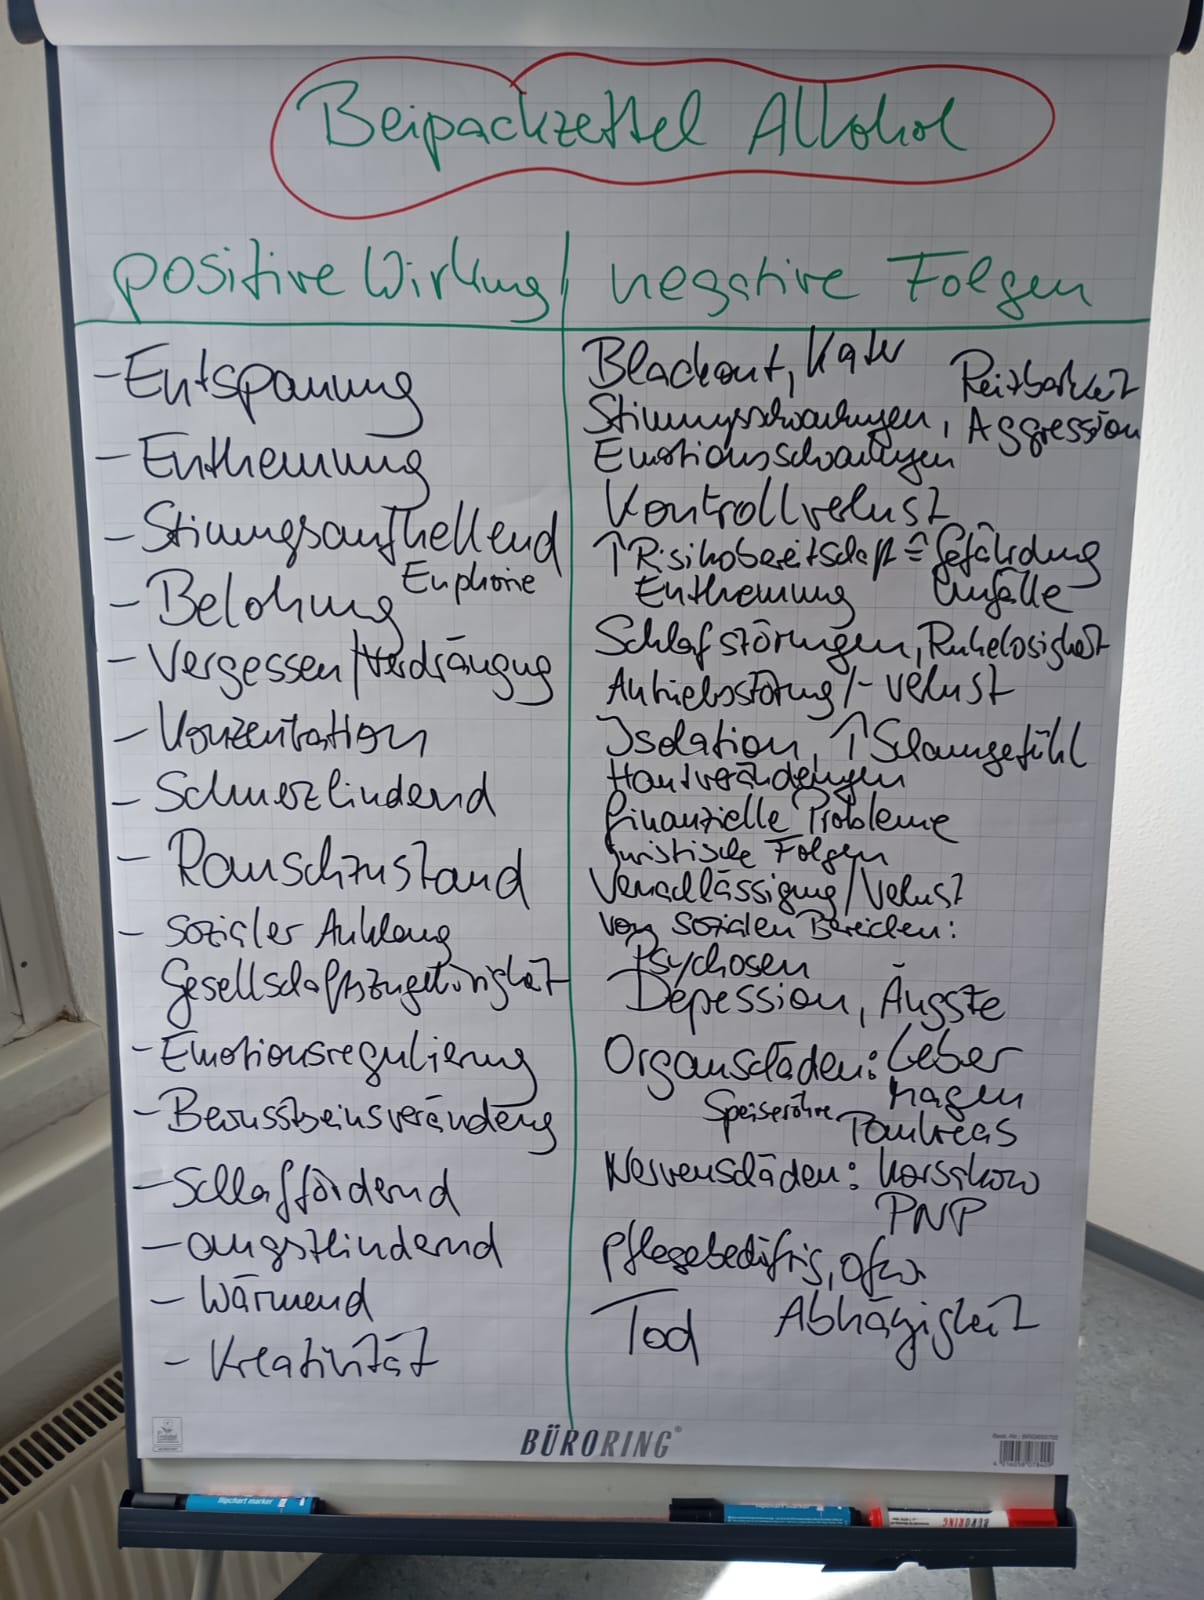 Beipackzettel Alkohol
positive Wirkung
- Entspannung
- Enthemmung
- Stimmungsaufhellend
Euphorie
- Belohnung
- Vergessen/Verdrängung
- Konzentration
- Schmerzlindernd
- Rauschzustand
- sozialer Anklang
Gesellschaftszugehörigkeit
- Emotionsregulierung
- Bewusstseinsveränderung
- Schlaffördernd
- angstlindernd
- Wärmend
- Kreativität
negative Folgen
Blackout, Kater Reizbarkeit
Stimmungsschwankungen, Aggression
Emotionsschwankungen
Kontrollverlust
↑ Risikobereitschaft ≙ Gefährdung
Enthemmung Unfälle
Schlafstörungen, Ruhelosigkeit
Antriebsstörung/-verlust
Isolation, ↑ Schamgefühl
Hautveränderungen
finanzielle Probleme
juristische Folgen
Vernachlässigung/Verlust
von sozialen Bereichen:
Psychosen
Depression, Ängste
Organschäden: Leber
Magen
Speiseröhre Pankreas
Nervenschäden: Korsakow
PNP
pflegebedürftig,
Tod Abhängigkeit
BÜRORING